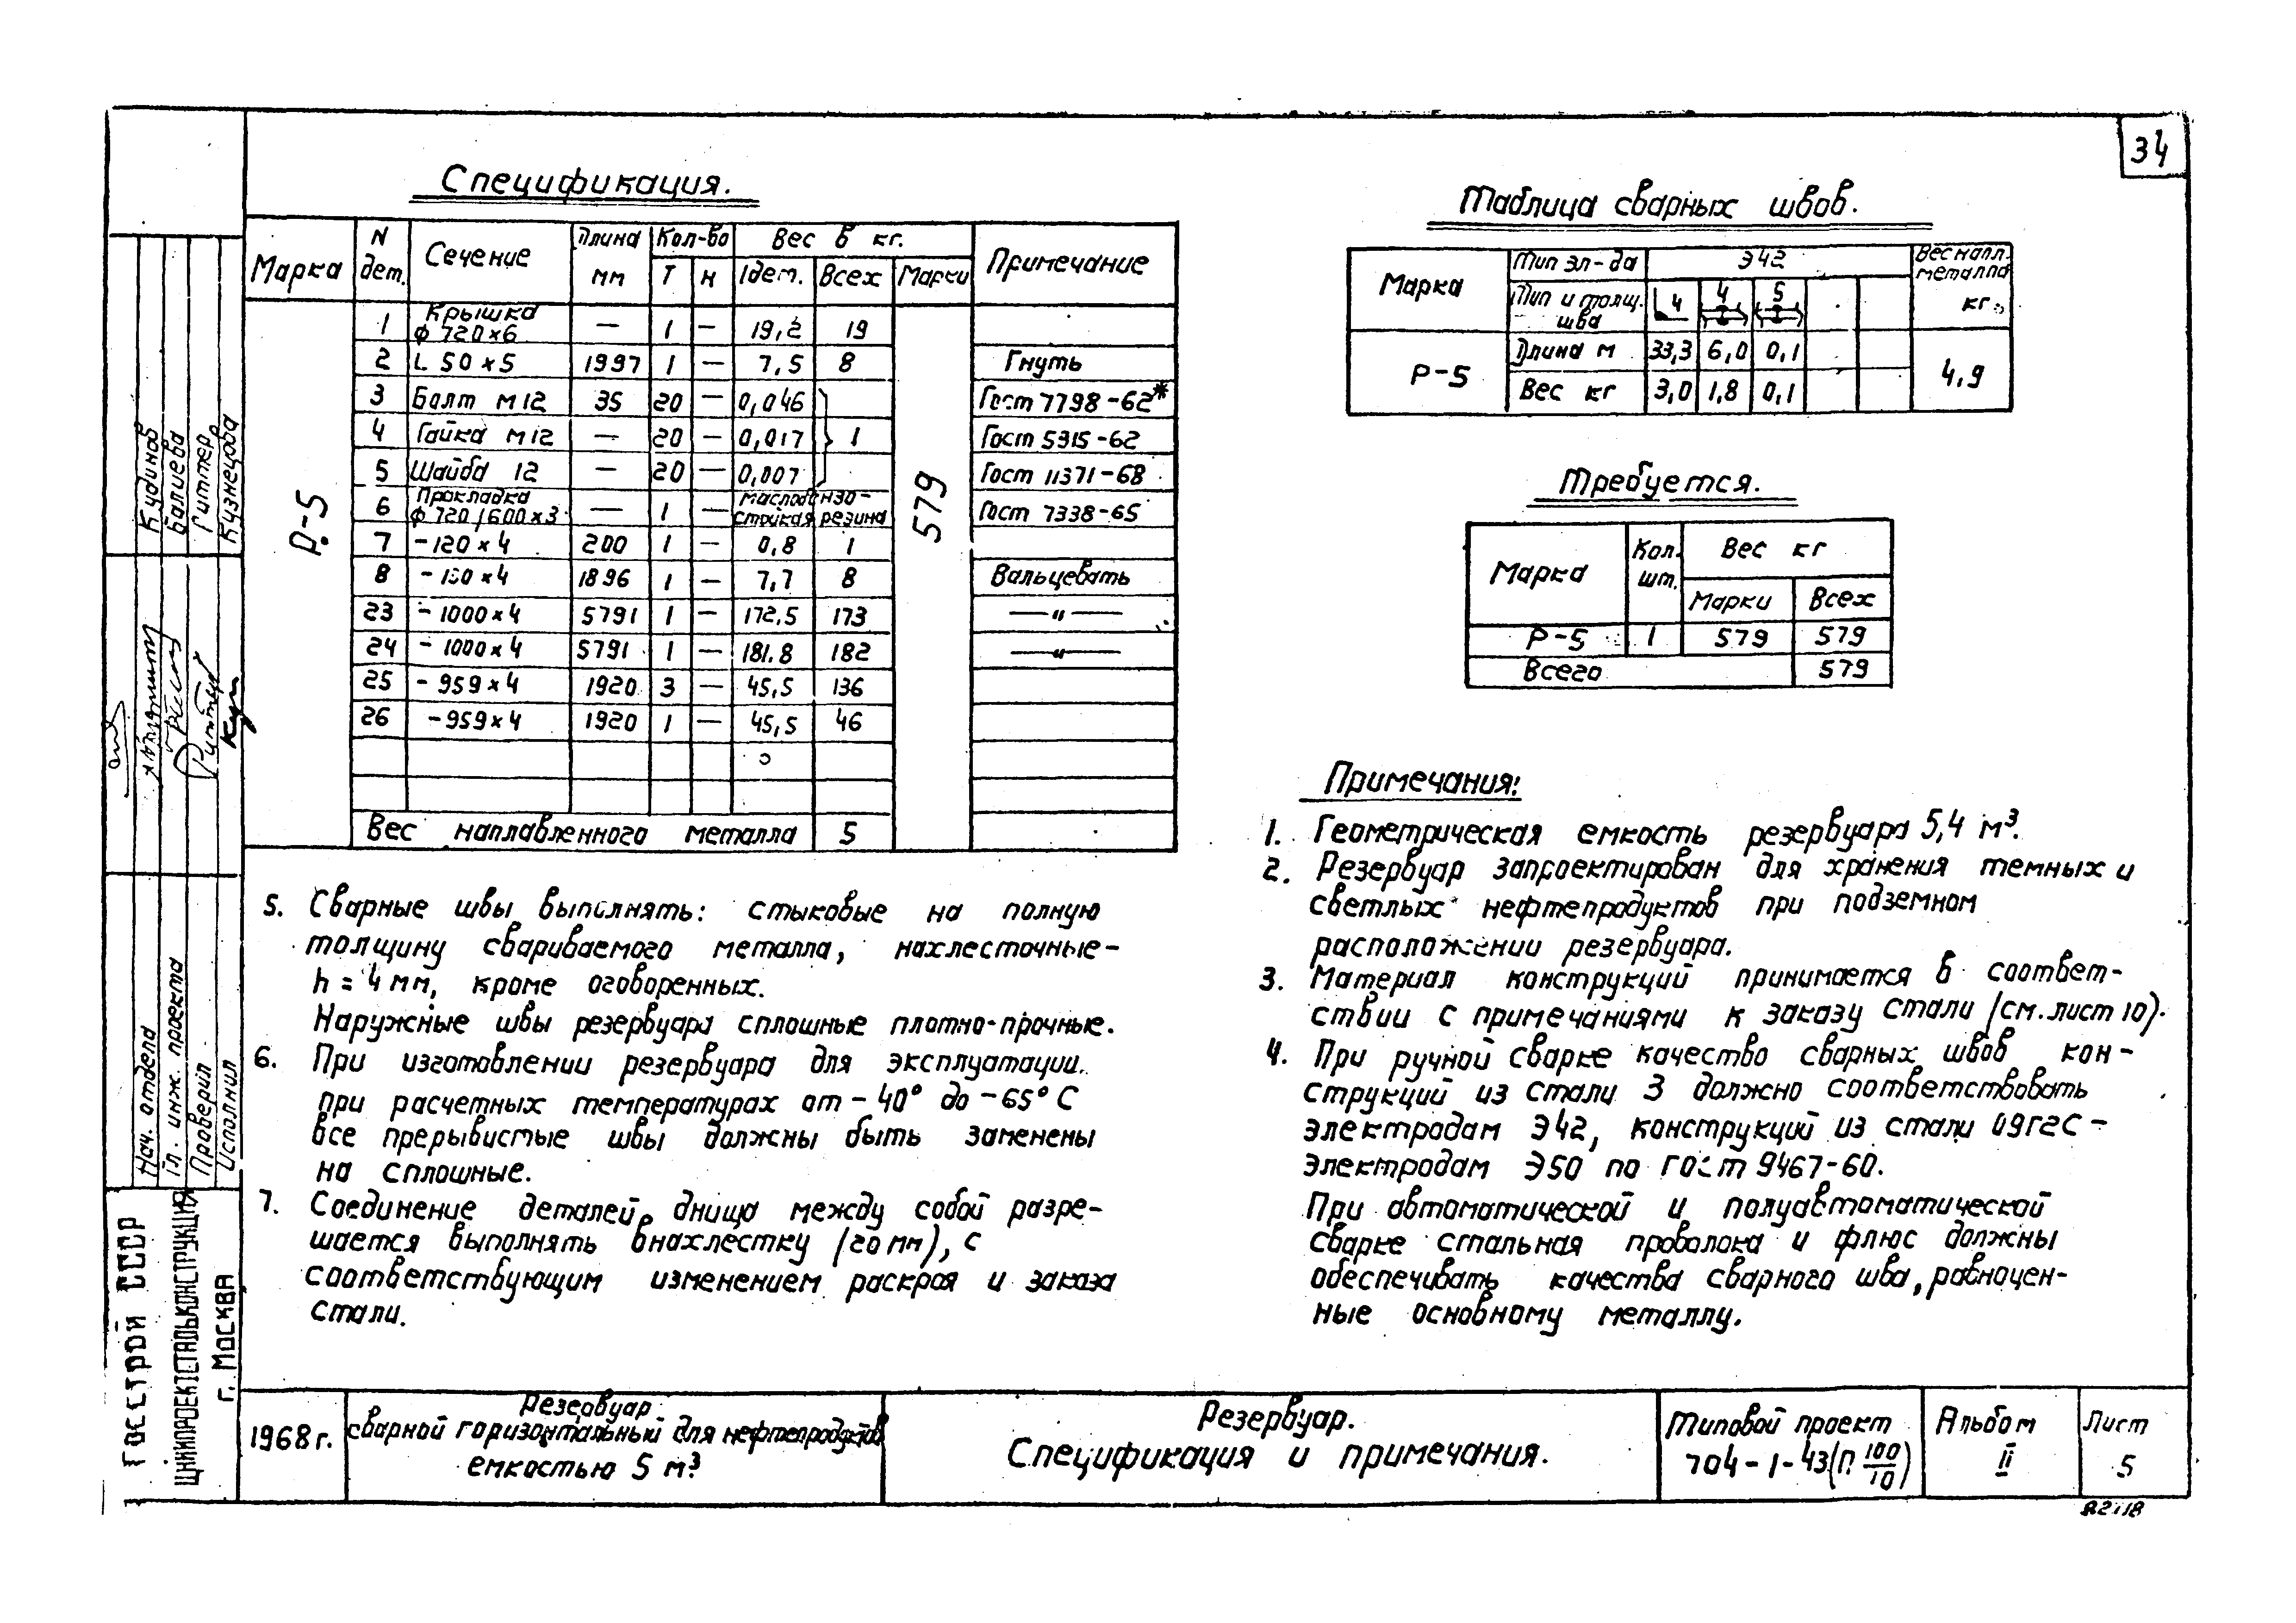 34
Спецификация.
Марка N дет. Сечение Длина мм Кол-во Т Н Вес в кг. 1дет. Всех Марки Примечание
Р-5 579
1 Крышка ф 720×6 — 1 — 19,2 19
2 L 50×5 1997 1 — 7,5 8 Гнуть
3 Болт М12 35 20 — 0,046 Гост 7798-62*
4 Гайка М12 — 20 — 0,017 1 Гост 5915-62
5 Шайба 12 — 20 — 0,007 Гост 11371-68
6 Прокладка ф 720/600×3 — 1 — маслобензо-стойкая резина Гост 7338-65
7 -120×4 200 1 — 0,8 1
8 1896 1 — 7,7 8 Вальцевать
23 -1000×4 5791 1 — 172,5 173 —"—
24 -1000×4 5791 1 — 181.8 182 —"—
25 -959×4 1920 3 — 45,5 136
26 -959×4 1920 1 — 45,5 46
Вес наплавленного металла 5
Таблица сварных швов.
Марка Тип эл-да Э42 Вес напл. металла кг.
Тип и толщ. шва 4 4 5
Р-5 Длина м 33,3 6,0 0,1 4,9
Вес кг 3,0 1,8 0,1
Требуется.
Марка Кол. шт. Вес кг
Марки Всех
Р-5 1 579 579
Всего 579
Примечания:
1. Геометрическая емкость резервуара 5,4 м³.
2. Резервуар запроектирован для хранения темных и
светлых нефтепродуктов при подземном
расположении резервуара.
3. Материал конструкций принимается в соответ-
ствии с примечаниями к заказу стали (см. лист 10).
4. При ручной сварке качество сварных швов кон-
струкций из стали 3 должно соответствовать
электродам Э42, конструкций из стали 09Г2С -
электродам Э50 по гост 9467-60.
При автоматической и полуавтоматической
сварке стальная проволока и флюс должны
обеспечивать качества сварного шва, равноцен-
ные основному металлу.
5. Сварные швы выполнять: стыковые на полную
толщину свариваемого металла, нахлесточные-
h = 4 мм, кроме оговоренных.
Наружные швы резервуара сплошные плотно-прочные.
6. При изготовлении резервуара для эксплуатации
при расчетных температурах от -40° до -65° С
все прерывистые швы должны быть заменены
на сплошные.
7. Соединение деталей днища между собой разре-
шается выполнять внахлестку (20 мм), с
соответствующим изменением раскроя и заказа
стали.
Кудинов
Балиева
Гиттер
Кузнецова
Нач. отдела
Гл. инж. проекта
Проверил
Исполнил
Госстрой СССР
ЦНИИПРОЕКТСТАЛЬКОНСТРУКЦИЯ
г. МОСКВА
1968 г.
Резервуар
сварной горизонтальный для нефтепродуктов
емкостью 5 м³.
Резервуар.
Спецификация и примечания.
Типовой проект
704-1-43(П 100/10)
Альбом
II
Лист
5